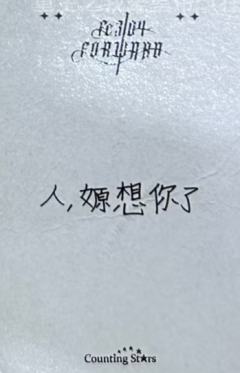 FC3104
FORWARD
人,嫄想你了
Counting St★rs